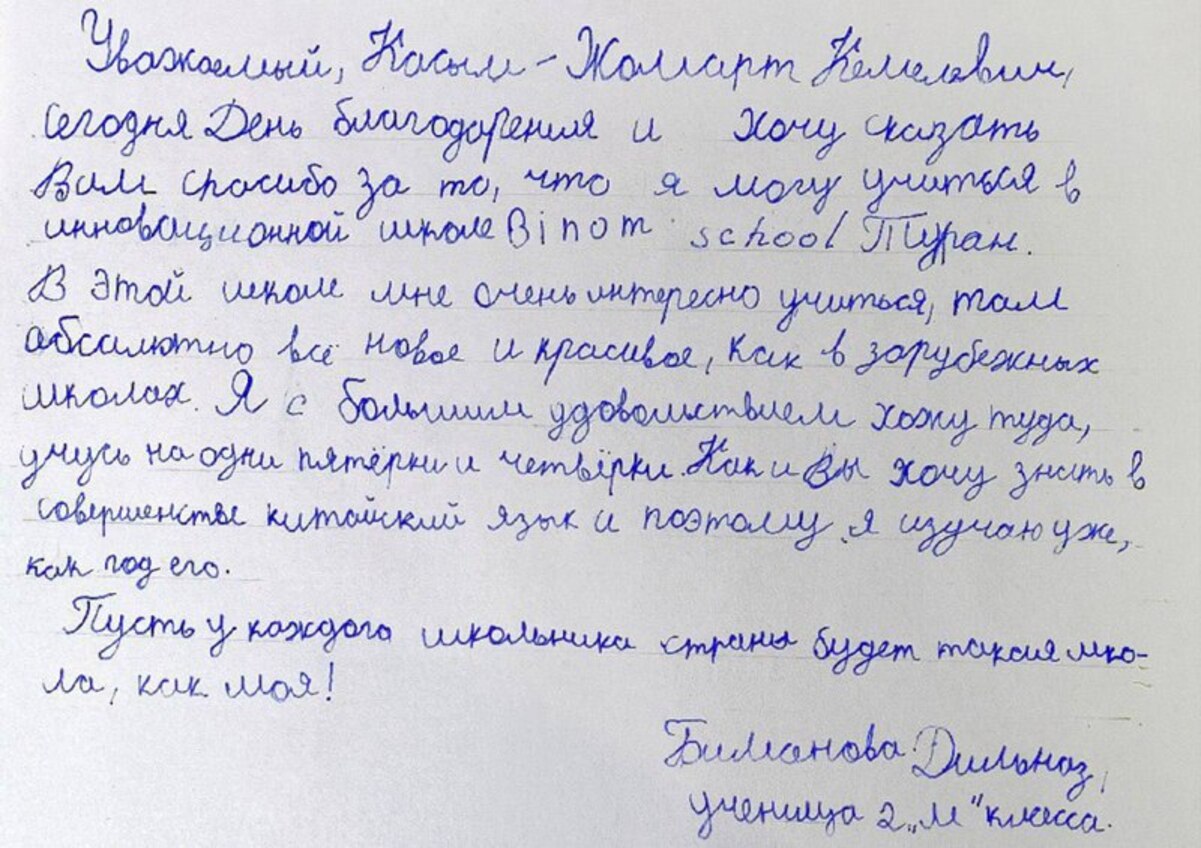 Уважаемый, Касым-Жомарт Кемелевич,
сегодня День благодарения и хочу сказать
Вам спасибо за то, что я могу учиться в
инновационной школе Binom school Туран.
В этой школе мне очень интересно учиться, там
абсалютно всё новое и красивое, как в зарубежных
школах. Я с большим удовольствием хожу туда,
учусь на одни пятёрки и четвёрки. Как и Вы хочу знать в
совершенстве китайский язык и поэтому я изучаю уже,
как год его.
Пусть у каждого школьника страны будет такая шко-
ла, как моя!
Биманова Дильназ,
ученица 2 „М" класса.